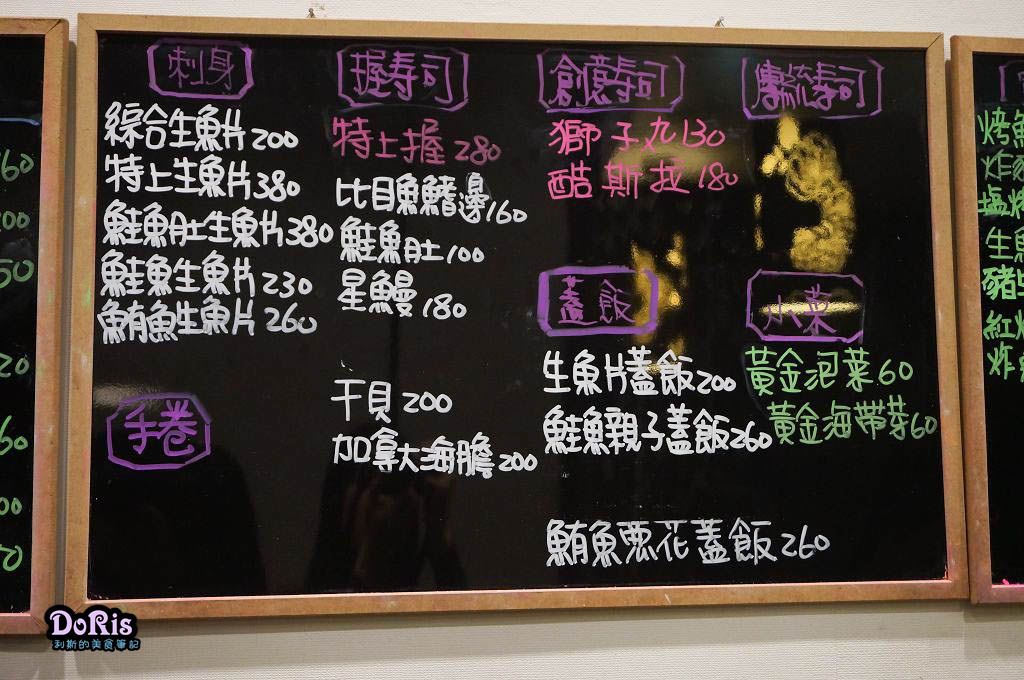 刺身
綜合生魚片 200
特上生魚片 380
鮭魚肚生魚片 380
鮭魚生魚片 230
鮪魚生魚片 260
手卷
握寿司
特上握 280
比目魚鰭邊 160
鮭魚肚 100
星鰻 180
干貝 200
加拿大海膽 200
創意寿司
獅子丸 130
酷斯拉 180
蓋飯
生魚片蓋飯 200
鮭魚親子蓋飯 260
鮪魚蔥花蓋飯 260
傳統寿司
小菜
黃金泡菜 60
黃金海帶芽 60
60
00
50
20
60
00
烤魚
炸
塩烤
生魚
豬
紅燒
炸
DoRis
利斯的美食筆記